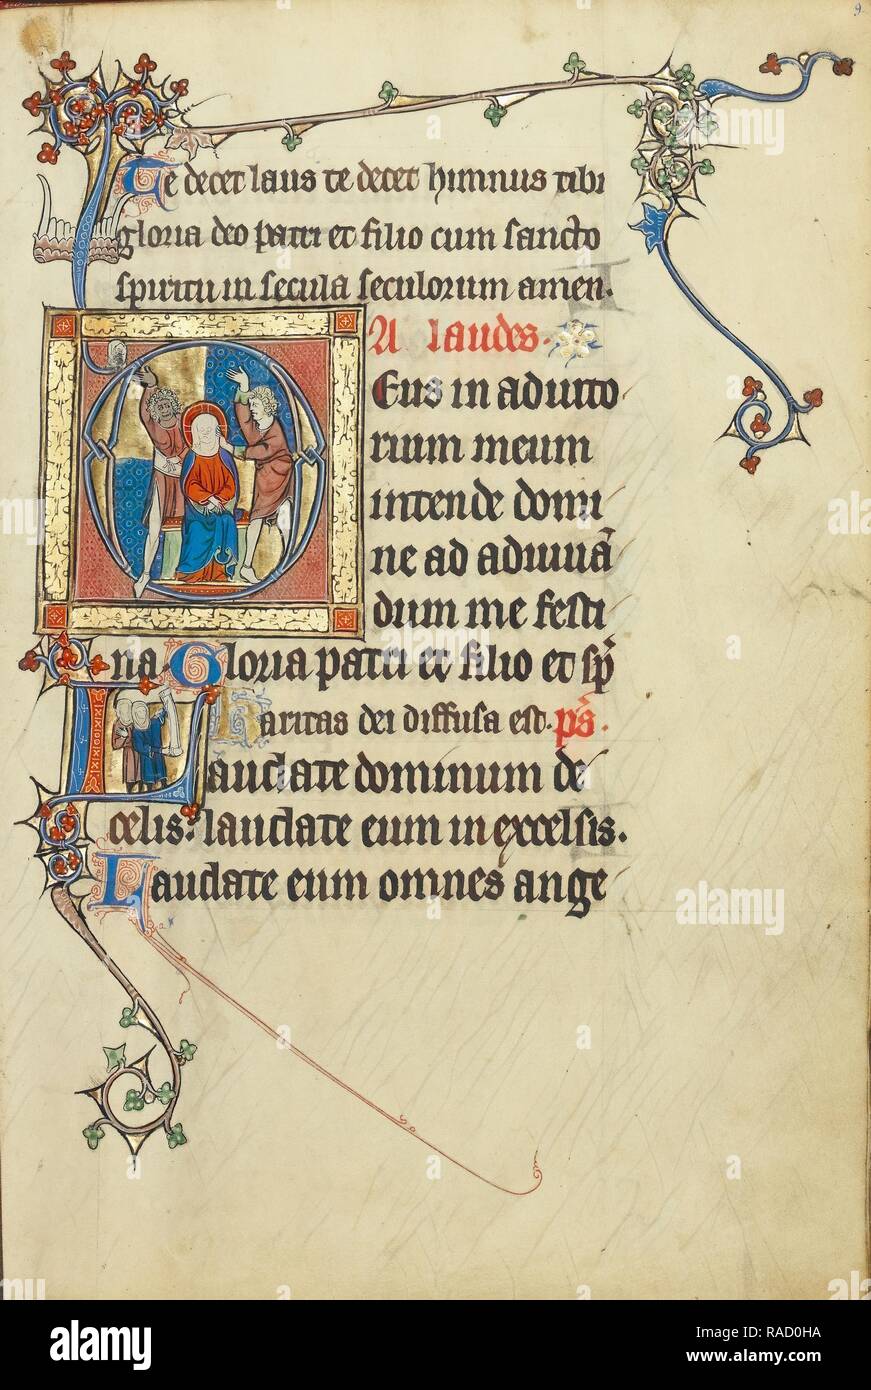 9
Te decet laus te decet himnus tibi
gloria deo patri et filio cum sancto
spiritu in secula seculorum amen.
A laudes.
Deus in adiuto
rium meum
intende domi
ne ad adiuuā
dum me festi
na. Gloria patri et filio et sp̄
Karitas dei diffusa est. p̄s.
Laudate dominum de
celis: laudate eum in excelsis.
Laudate eum omnes ange
alamy
alamy
Image ID: RAD0HA
www.alamy.com